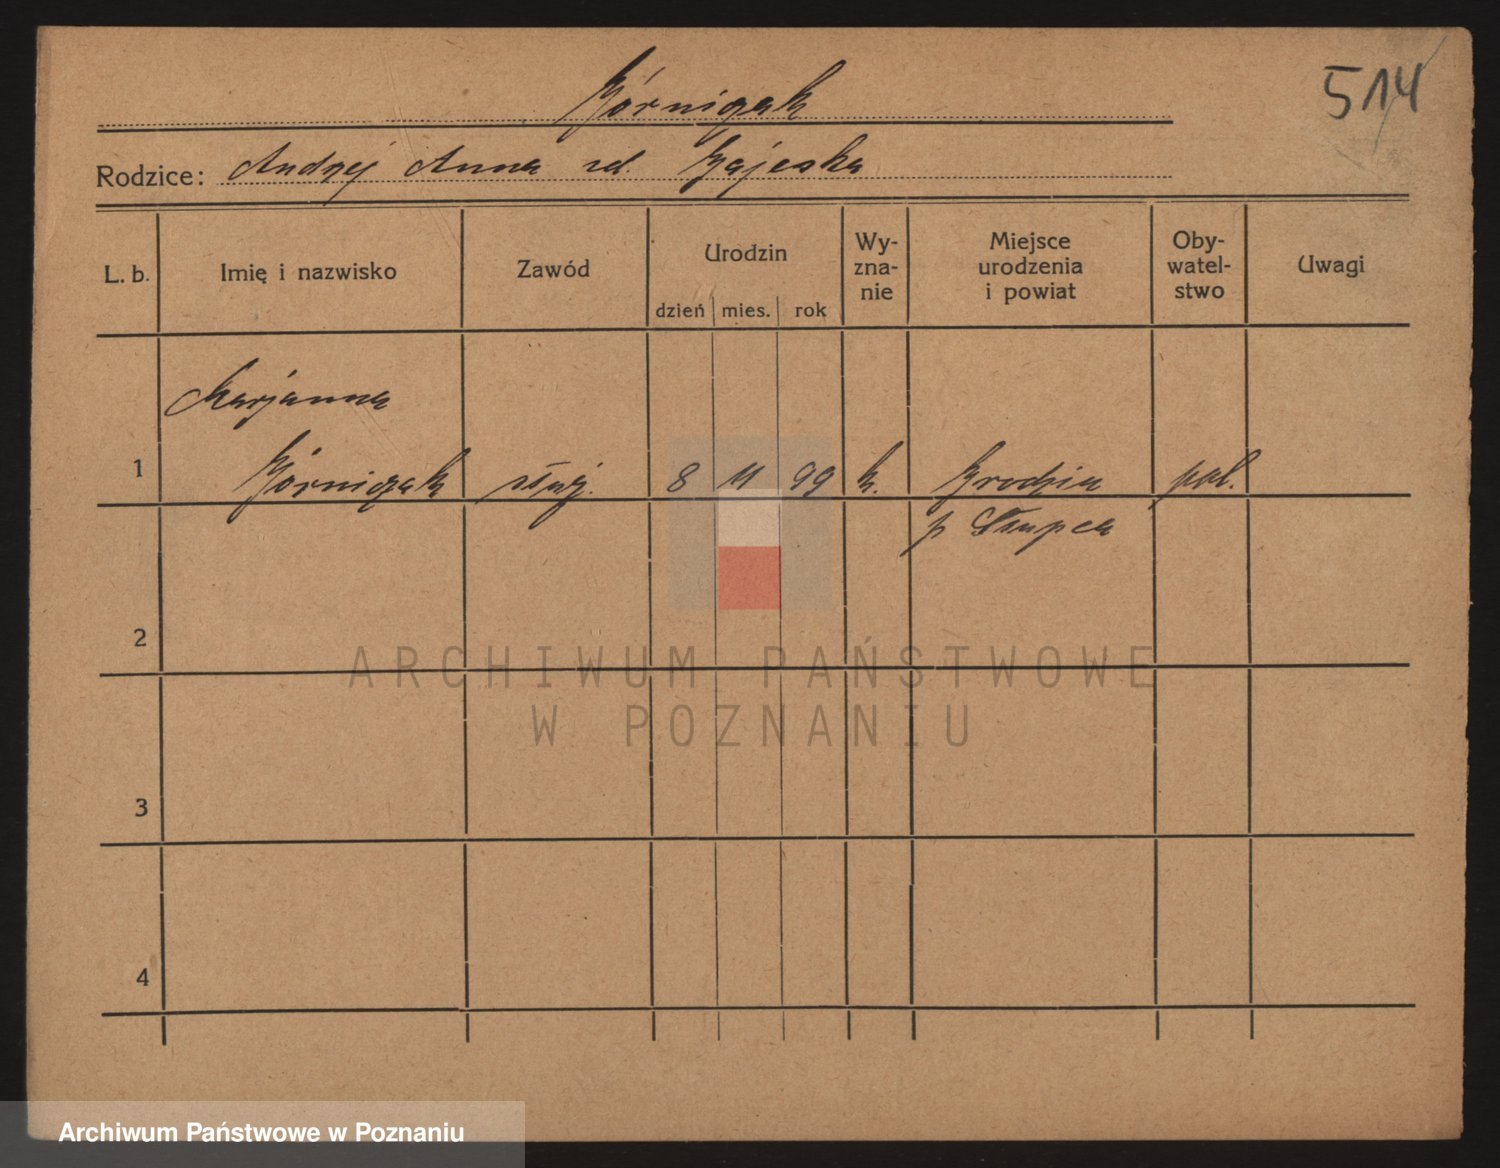 514
Górnigak
Rodzice: Andrzej Anna zd. Gajeska
L. b. Imię i nazwisko Zawód Urodzin dzień mies. rok Wy-zna-nie Miejsce urodzenia i powiat Oby-watel-stwo Uwagi
Marjanna
1 Górnigak służ. 8 11 99 k. pol.
p Słupca
2
ARCHIWUM PAŃSTWOWE
W POZNANIU
3
4
Archiwum Państwowe w Poznaniu